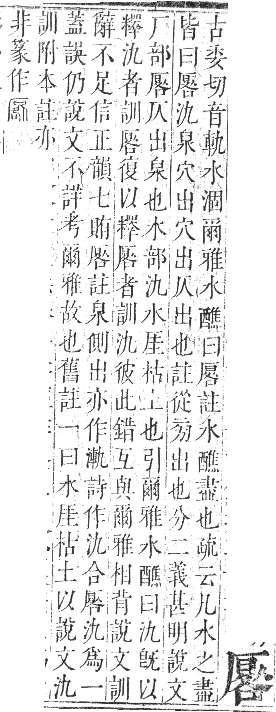 厬
古委切音軌水涸爾雅水醮曰厬註水醮盡也疏云凡水之盡
皆曰厬氿泉穴出穴出仄出也註從旁出也分二義甚明說文
厂部厬仄出泉也水部氿水厓枯土也引爾雅水醮曰氿旣以
釋氿者訓厬復以釋厬者訓氿彼此錯互與爾雅相背說文訓
辭不足信正韻七賄厬註泉側出亦作詩作氿合厬氿爲一
蓋誤仍說文不詳考爾雅故也舊註一曰水厓枯土以說文氿
訓附本註亦
非篆作厬